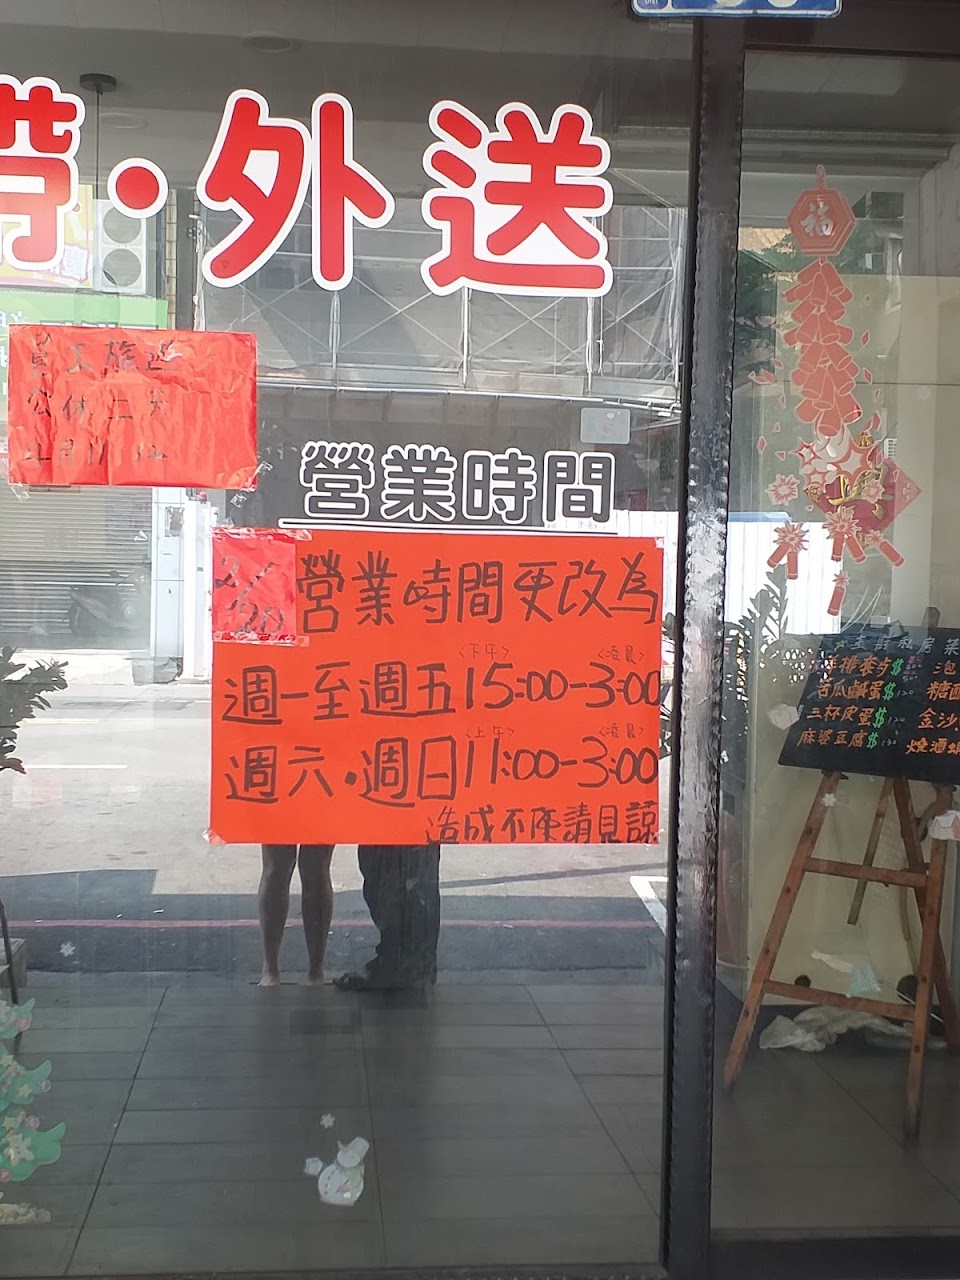 帶·外送
福
員工旅遊
公休二天
營業時間
2/20 營業時間更改為
〈下午〉 〈凌晨〉
週一至週五15:00-3:00
〈上午〉 〈凌晨〉
週六·週日11:00-3:00
造成不便請見諒
房菜
$
泡
苦瓜鹹蛋$120
糖醋
三杯皮蛋$120
金沙
麻婆豆腐$120
燒酒蝦